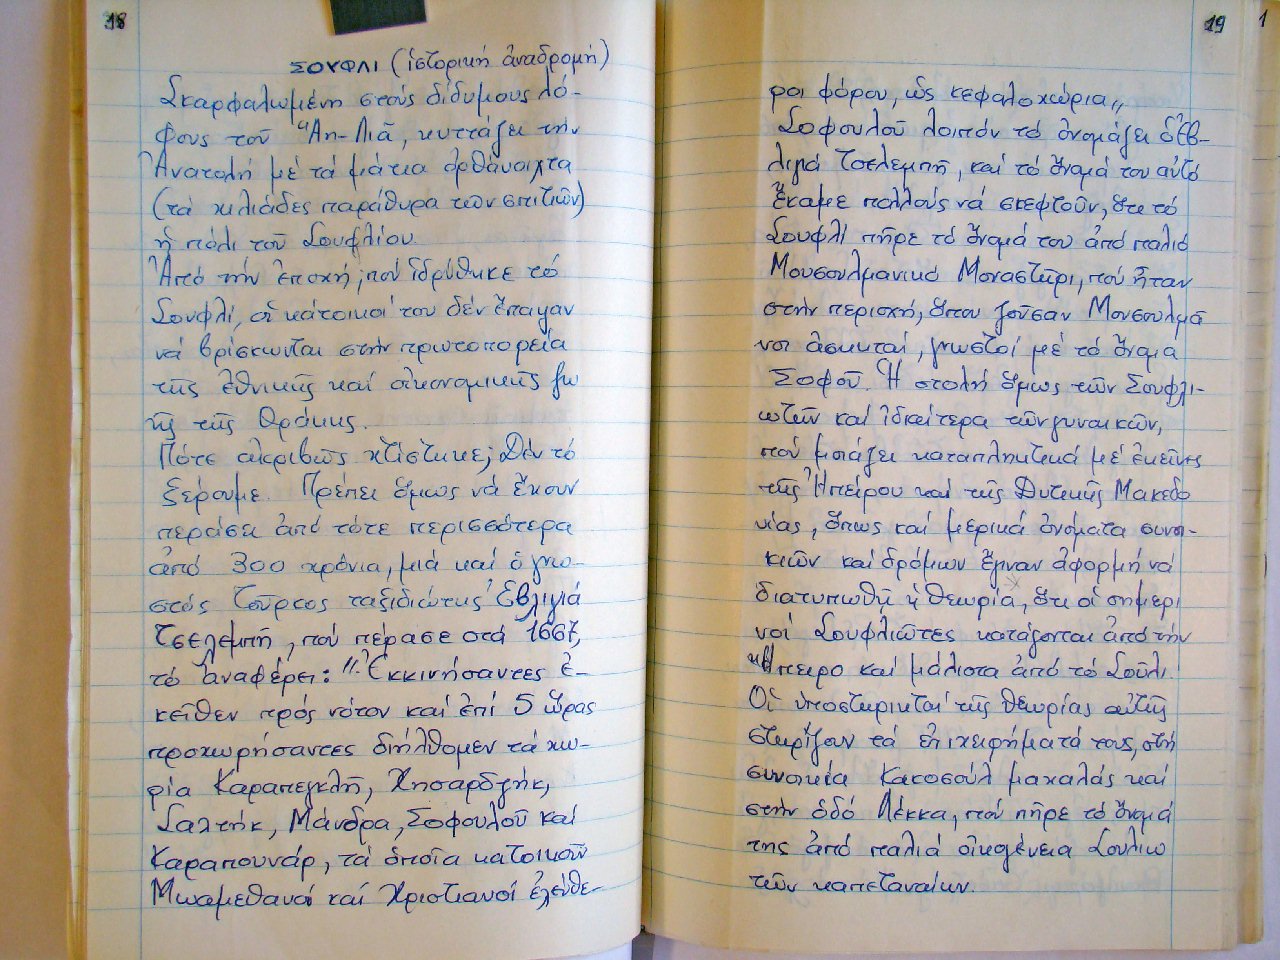 18
ΣΟΥΦΛΙ (ἱστορική ἀναδρομή)
Σκαρφαλωμένη στούς δίδυμους λό-
φους τοῦ Ἅη-Λιᾶ, κυττάζει τήν
Ἀνατολή μέ τά μάτια ὀρθάνοιχτα
(τά χιλιάδες παράθυρα τῶν σπιτιῶν)
ἡ πόλι τοῦ Σουφλίου.
Ἀπό τήν ἐποχή, πού ἱδρύθηκε τό
Σουφλί, οἱ κάτοικοί του δέν ἔπαψαν
νά βρίσκωνται στήν πρωτοπορεία
τῆς ἐθνικῆς καί οἰκονομικῆς ζω
ῆς τῆς Θράκης.
Πότε ἀκριβῶς χτίστηκε; Δέν τό
ξέρουμε. Πρέπει ὅμως νά ἔχουν
περάσει ἀπό τότε περισσότερα
ἀπό 300 χρόνια, μιά καί ὁ γνω-
στός Τοῦρκος ταξιδιώτης Ἐβλιγιά
Τσελεμπῆ, πού πέρασε στά 1667,
τό ἀναφέρει: "Ἐκκινήσαντες ἐ-
κεῖθεν πρός νότον καί ἐπί 5 ὥρας
προχωρήσαντες διήλθομεν τά χω-
ρία Καραπεγκλῆ, Χησαρδζήκ,
Σαλτήκ, Μάνδρα, Σοφουλοῦ καί
Καραπουνάρ, τά ὁποῖα κατοικοῦν
Μωαμεθανοί καί Χριστιανοί ἐλεύθε-
19
ροι φόρου, ὡς κεφαλοχώρια"
Σοφουλοῦ λοιπόν τό ὀνομάζει ὁ Ἐβ-
λιγιά Τσελεμπῆ, καί τό ὄνομά του αὐτό
ἔκαμε πολλούς νά σκεφτοῦν, ὅτι τό
Σουφλί πῆρε τό ὄνομά του ἀπό παλιό
Μουσουλμανικό Μοναστῆρι, πού ἦταν
στήν περιοχή, ὅπου ζοῦσαν Μουσουλμᾶ
νοι ἀσκηταί, γνωστοί μέ τό ὄνομα
Σοφοῦ. Ἡ στολή ὅμως τῶν Σουφλι-
ωτῶν καί ἰδιαίτερα τῶν γυναικῶν,
πού μοιάζει καταπληκτικά μέ ἐκείνης
τῆς Ἠπείρου καί τῆς Δυτικῆς Μακεδο
νίας, ὅπως καί μερικά ὀνόματα συνοι-
κιῶν καί δρόμων ἔγιναν ἀφορμή νά
διατυπωθῆ ἡ θεωρία, ὅτι οἱ σημερι
νοί Σουφλιῶτες κατάγονται ἀπό τήν
Ἤπειρο καί μάλιστα ἀπό τό Σοῦλι.
Οἱ ὑποστηρικταί τῆς θεωρίας αὐτῆς
στηρίζουν τά ἐπιχειρήματά τους, στή
συνοικία Κακοσούλ μαχαλάς καί
στήν ὁδό Λέκκα, πού πῆρε τό ὄνομά
της ἀπό παλιά οἰκογένεια Σουλιω
τῶν καπεταναίων.
1